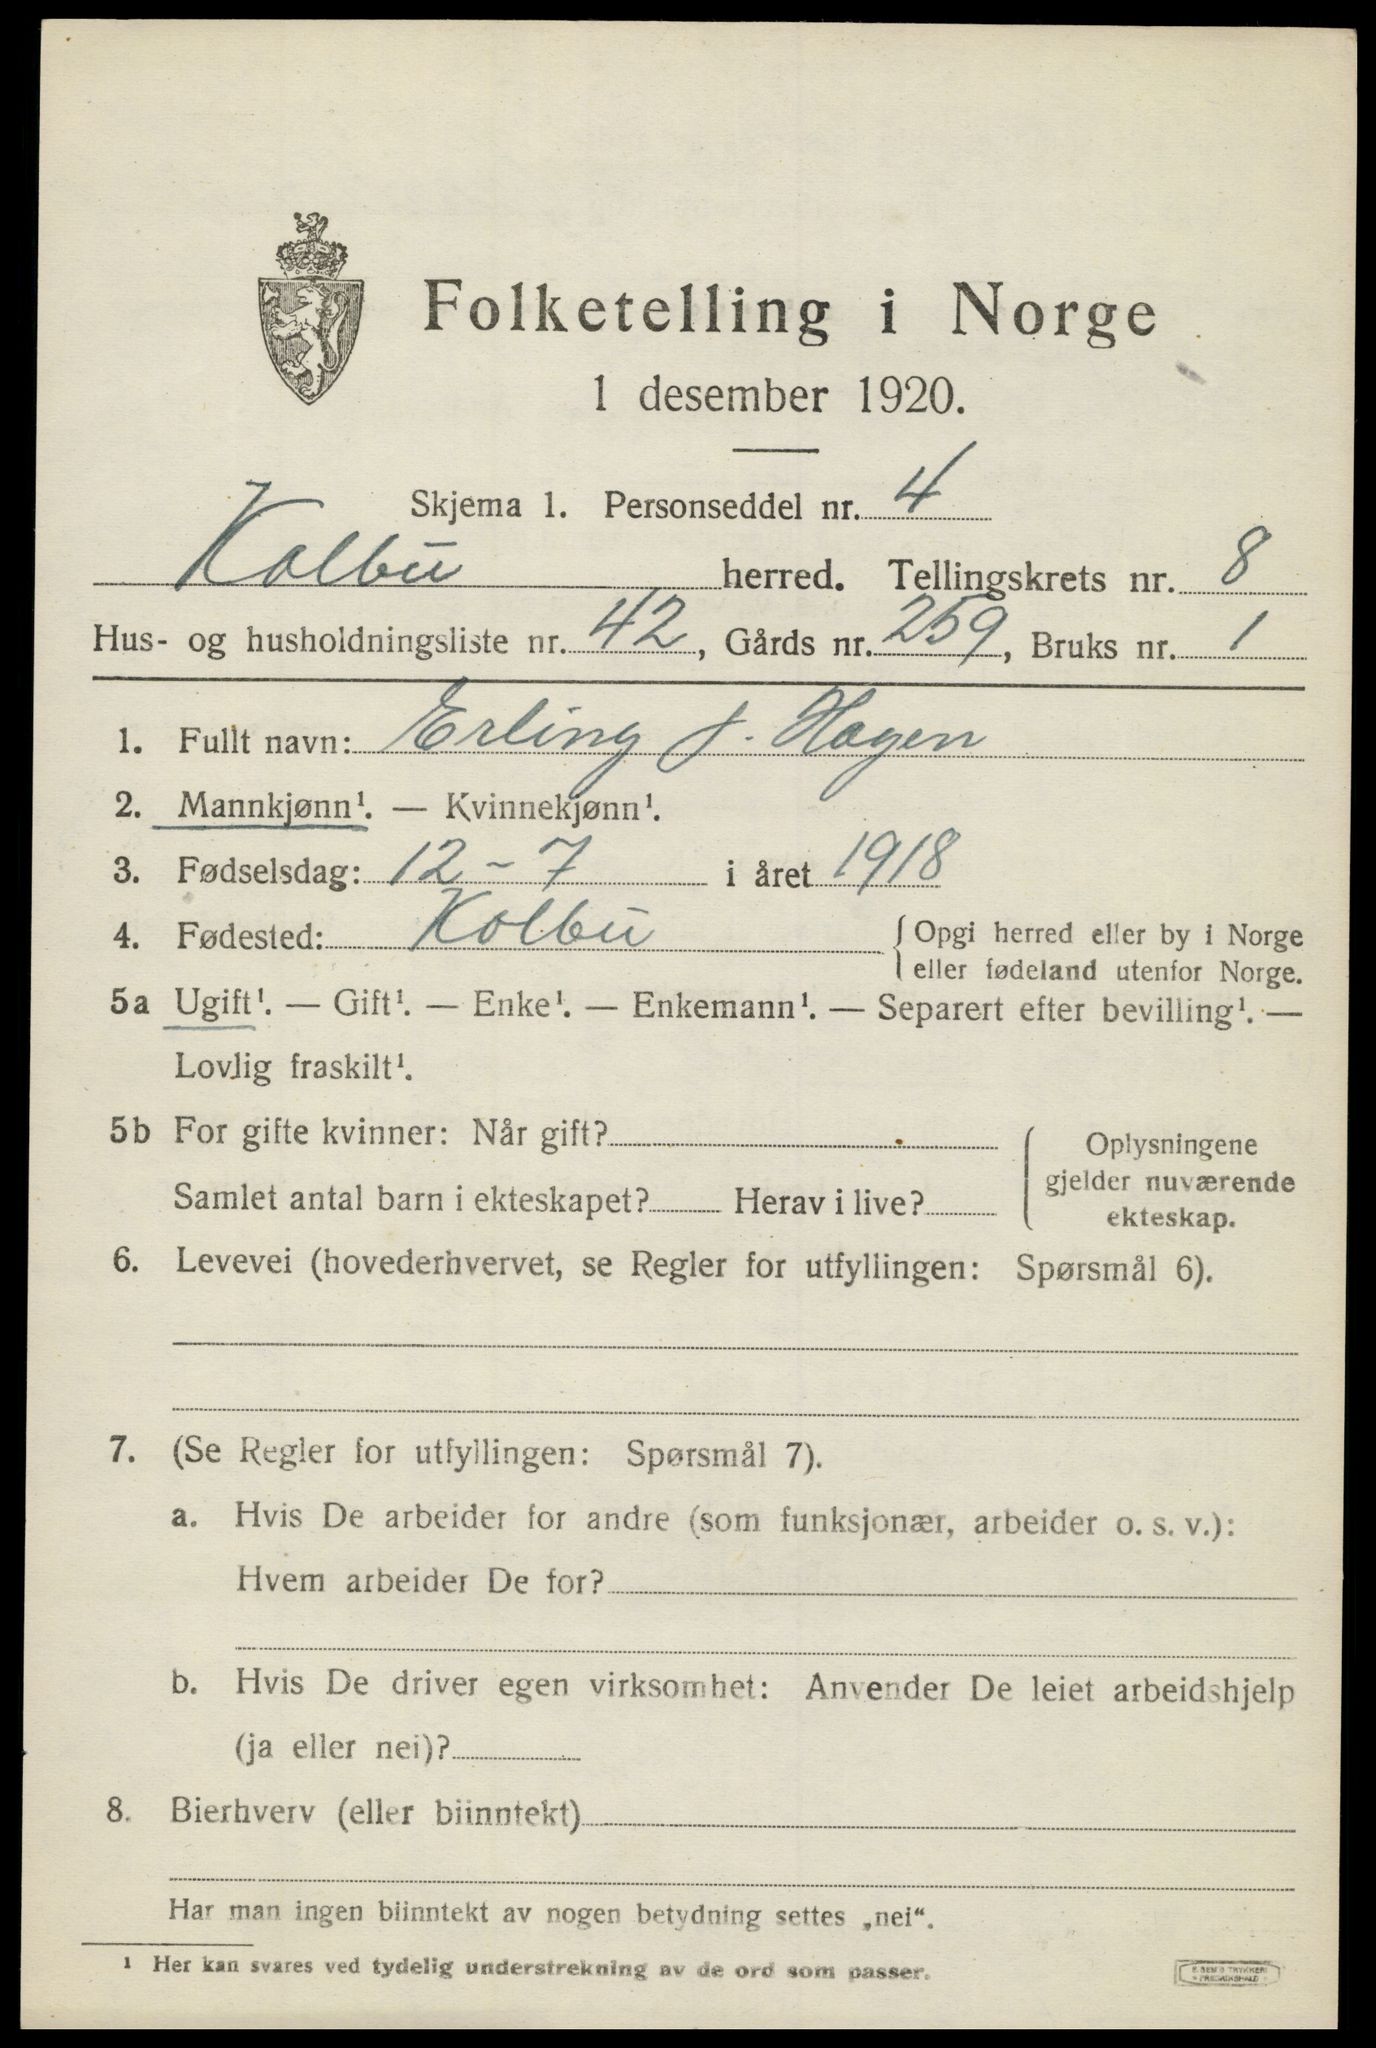 Folketelling i Norge
1 desember 1920.
Skjema 1. Personseddel nr. 4
Kolbu herred. Tellingskrets nr. 8
Hus- og husholdningsliste nr. 42, Gårds nr. 259, Bruks nr. 1
1. Fullt navn: Erling J. Hagen
2. Mannkjønn¹. — Kvinnekjønn¹.
3. Fødselsdag: 12-7 i året 1918
4. Fødested: Kolbu { Opgi herred eller by i Norge
eller fødeland utenfor Norge.
5a Ugift¹. — Gift¹. — Enke¹. — Enkemann¹. — Separert efter bevilling¹. —
Lovlig fraskilt¹.
5b For gifte kvinner: Når gift?
Samlet antal barn i ekteskapet? Herav i live?
Oplysningene
gjelder nuværende
ekteskap.
6. Levevei (hovederhvervet, se Regler for utfyllingen: Spørsmål 6).
7. (Se Regler for utfyllingen: Spørsmål 7).
a. Hvis De arbeider for andre (som funksjonær, arbeider o. s. v.):
Hvem arbeider De for?
b. Hvis De driver egen virksomhet: Anvender De leiet arbeidshjelp
(ja eller nei)?
8. Bierhverv (eller biinntekt)
Har man ingen biinntekt av nogen betydning settes „nei“.
¹ Her kan svares ved tydelig understrekning av de ord som passer.
E. SEM'S TRYKKERI
FREDRIKSHALD